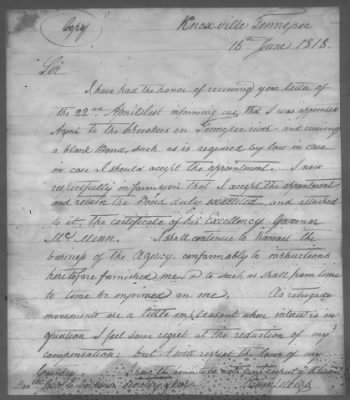 Copy
Knoxville Tennessee
16th June 1818.
Sir
I have had the honor of receiving your letter
of the 22nd April last informing me that I was appointed
Agent to the Cherokees on Tennessee river and covering
a blank Bond, such as is required by law in case
in case I should accept the appointment. I now
respectfully inform you that I accept the appointment
and return the Bond duly executed, and attached
to it, the certificate of his Excellency Governor
McMinn. I shall continue to transact the
business of the Agency, conformably to instructions
heretofore furnished me, & to such as shall from time
to time be imposed on me. As retrograde
movements are a little unpleasant when interest is in
question I feel some regret at the reduction of my
compensation; but I will respect the laws of my
country. I have the honor to be with great respect